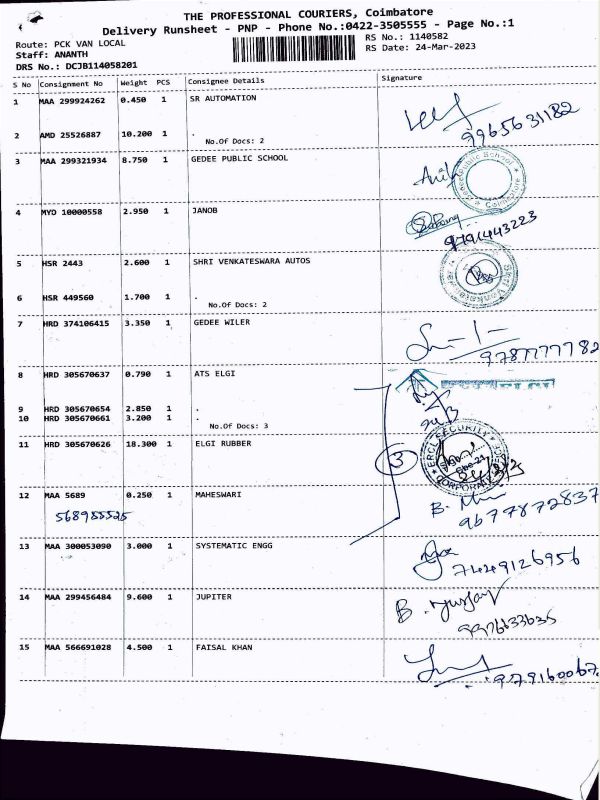 THE PROFESSIONAL COURIERS, Coimbatore
Delivery Runsheet - PNP - Phone No.:0422-3505555 - Page No.:1
Route: PCK VAN LOCAL
RS No.: 1140582
Staff: ANANTH
RS Date: 24-Mar-2023
DRS No.: DCJB114058201
S No Consignment No Weight PCS Consignee Details Signature
1 MAA 299924262 0.450 1 SR AUTOMATION
9965631182
2 AMD 25526887 10.200 1 .
No.Of Docs: 2
3 MAA 299321934 8.750 1 GEDEE PUBLIC SCHOOL
Public School
Coimbatore
4 MYD 10000558 2.950 1 JANOB
9791443223
5 HSR 2443 2.600 1 SHRI VENKATESWARA AUTOS
6 HSR 449560 1.700 1 .
No.Of Docs: 2
7 HRD 374106415 3.350 1 GEDEE WILER
8 HRD 305670637 0.790 1 ATS ELGI
9 HRD 305670654 2.850 1 .
10 HRD 305670661 3.200 1 .
No.Of Docs: 3
11 HRD 305670626 18.300 1 ELGI RUBBER
3
SECURITY
12 MAA 5689 0.250 1 MAHESWARI
568985525
9677872837
13 MAA 300053090 3.000 1 SYSTEMATIC ENGG
7449126956
14 MAA 299456484 9.600 1 JUPITER
15 MAA 566691028 4.500 1 FAISAL KHAN